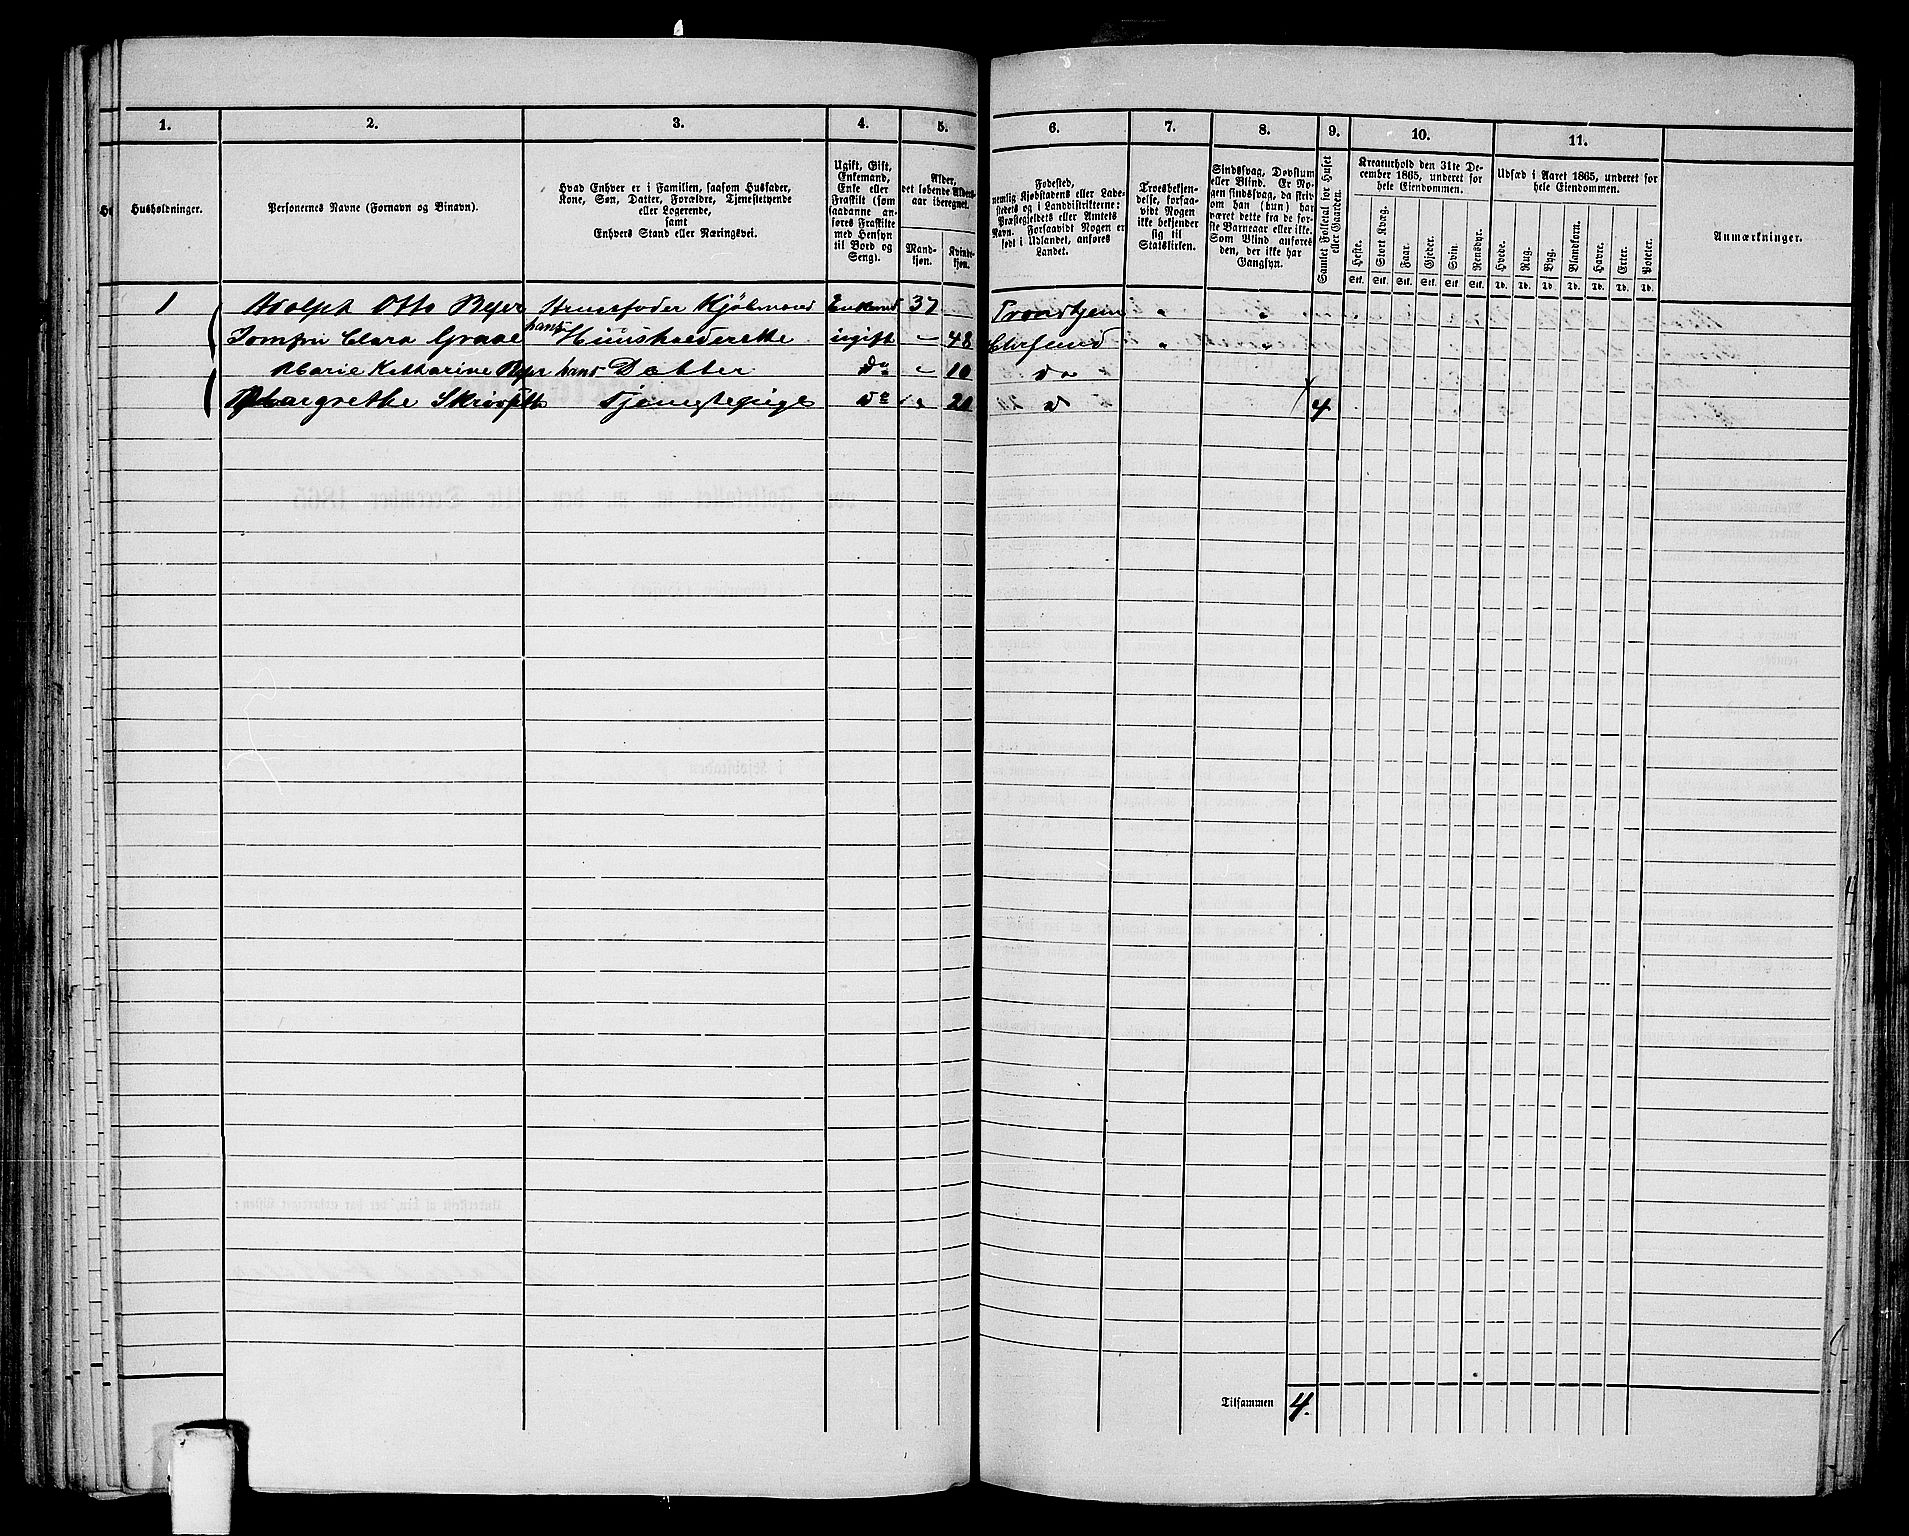 1. 2. 3. 4. 5. 6. 7. 8. 9. 10. 11.
Husholdninger.
Personernes Navne (Fornavn og Binavn).
Hvad Enhver er i Familien, saasom Husfader,
Kone, Søn, Datter, Forældre, Tjenestetyende
eller Logerende,
samt
Enhvers Stand eller Næringsvei.
Ugift, Gift,
Enkemand,
Enke eller
Fraskilt (som
saadanne an-
føres Fraskilte
med Hensyn
til Bord og
Seng).
Alder,
det løbende Alders-
aar iberegnet.
Mand-
kjøn.
Kvinde-
kjøn.
Fødested,
nemlig Kjøbstadens eller Lade-
stedets og i Landdistrikterne:
Præstegjeldets eller Amtets
Navn. Forsaavidt Nogen er
født i Udlandet, anføres
Landet.
Troesbekjen-
delse, forsaa-
vidt Nogen
ikke bekjender
sig til
Statskirken.
Sindssvag, Døvstum
eller Blind. Er No-
gen sindssvag, da skriv
om han (hun) har
været dette fra de før-
ste Barneaar eller ikke.
Som Blind anføres
den, der ikke har
Gangsyn.
Samlet Folketal for Huset
eller Gaarden.
Kreaturhold den 31te De-
cember 1865, underet for
hele Eiendommen.
Heste. Stort Kvæg. Faar. Gjeder. Svin. Rensdyr.
Stk. Stk. Stk. Stk. Stk. Stk.
Udsæd i Aaret 1865, underet for
hele Eiendommen.
Hvede. Rug. Byg. Blandkorn. Havre. Erter. Poteter.
Td. Td. Td. Td. Td. Td. Td.
Anmærkninger.
1 Adolph Otto Beyer Huusfader Kjöbmand Enkemd 37 Trondhjem
Jomfru Clara Graae hans Huusholderske ugift - 48
Marie Katharine Beyer hans Datter do - 10 do
Margrethe 	Tjenestepige do 20 d 4
Tilsammen 4.